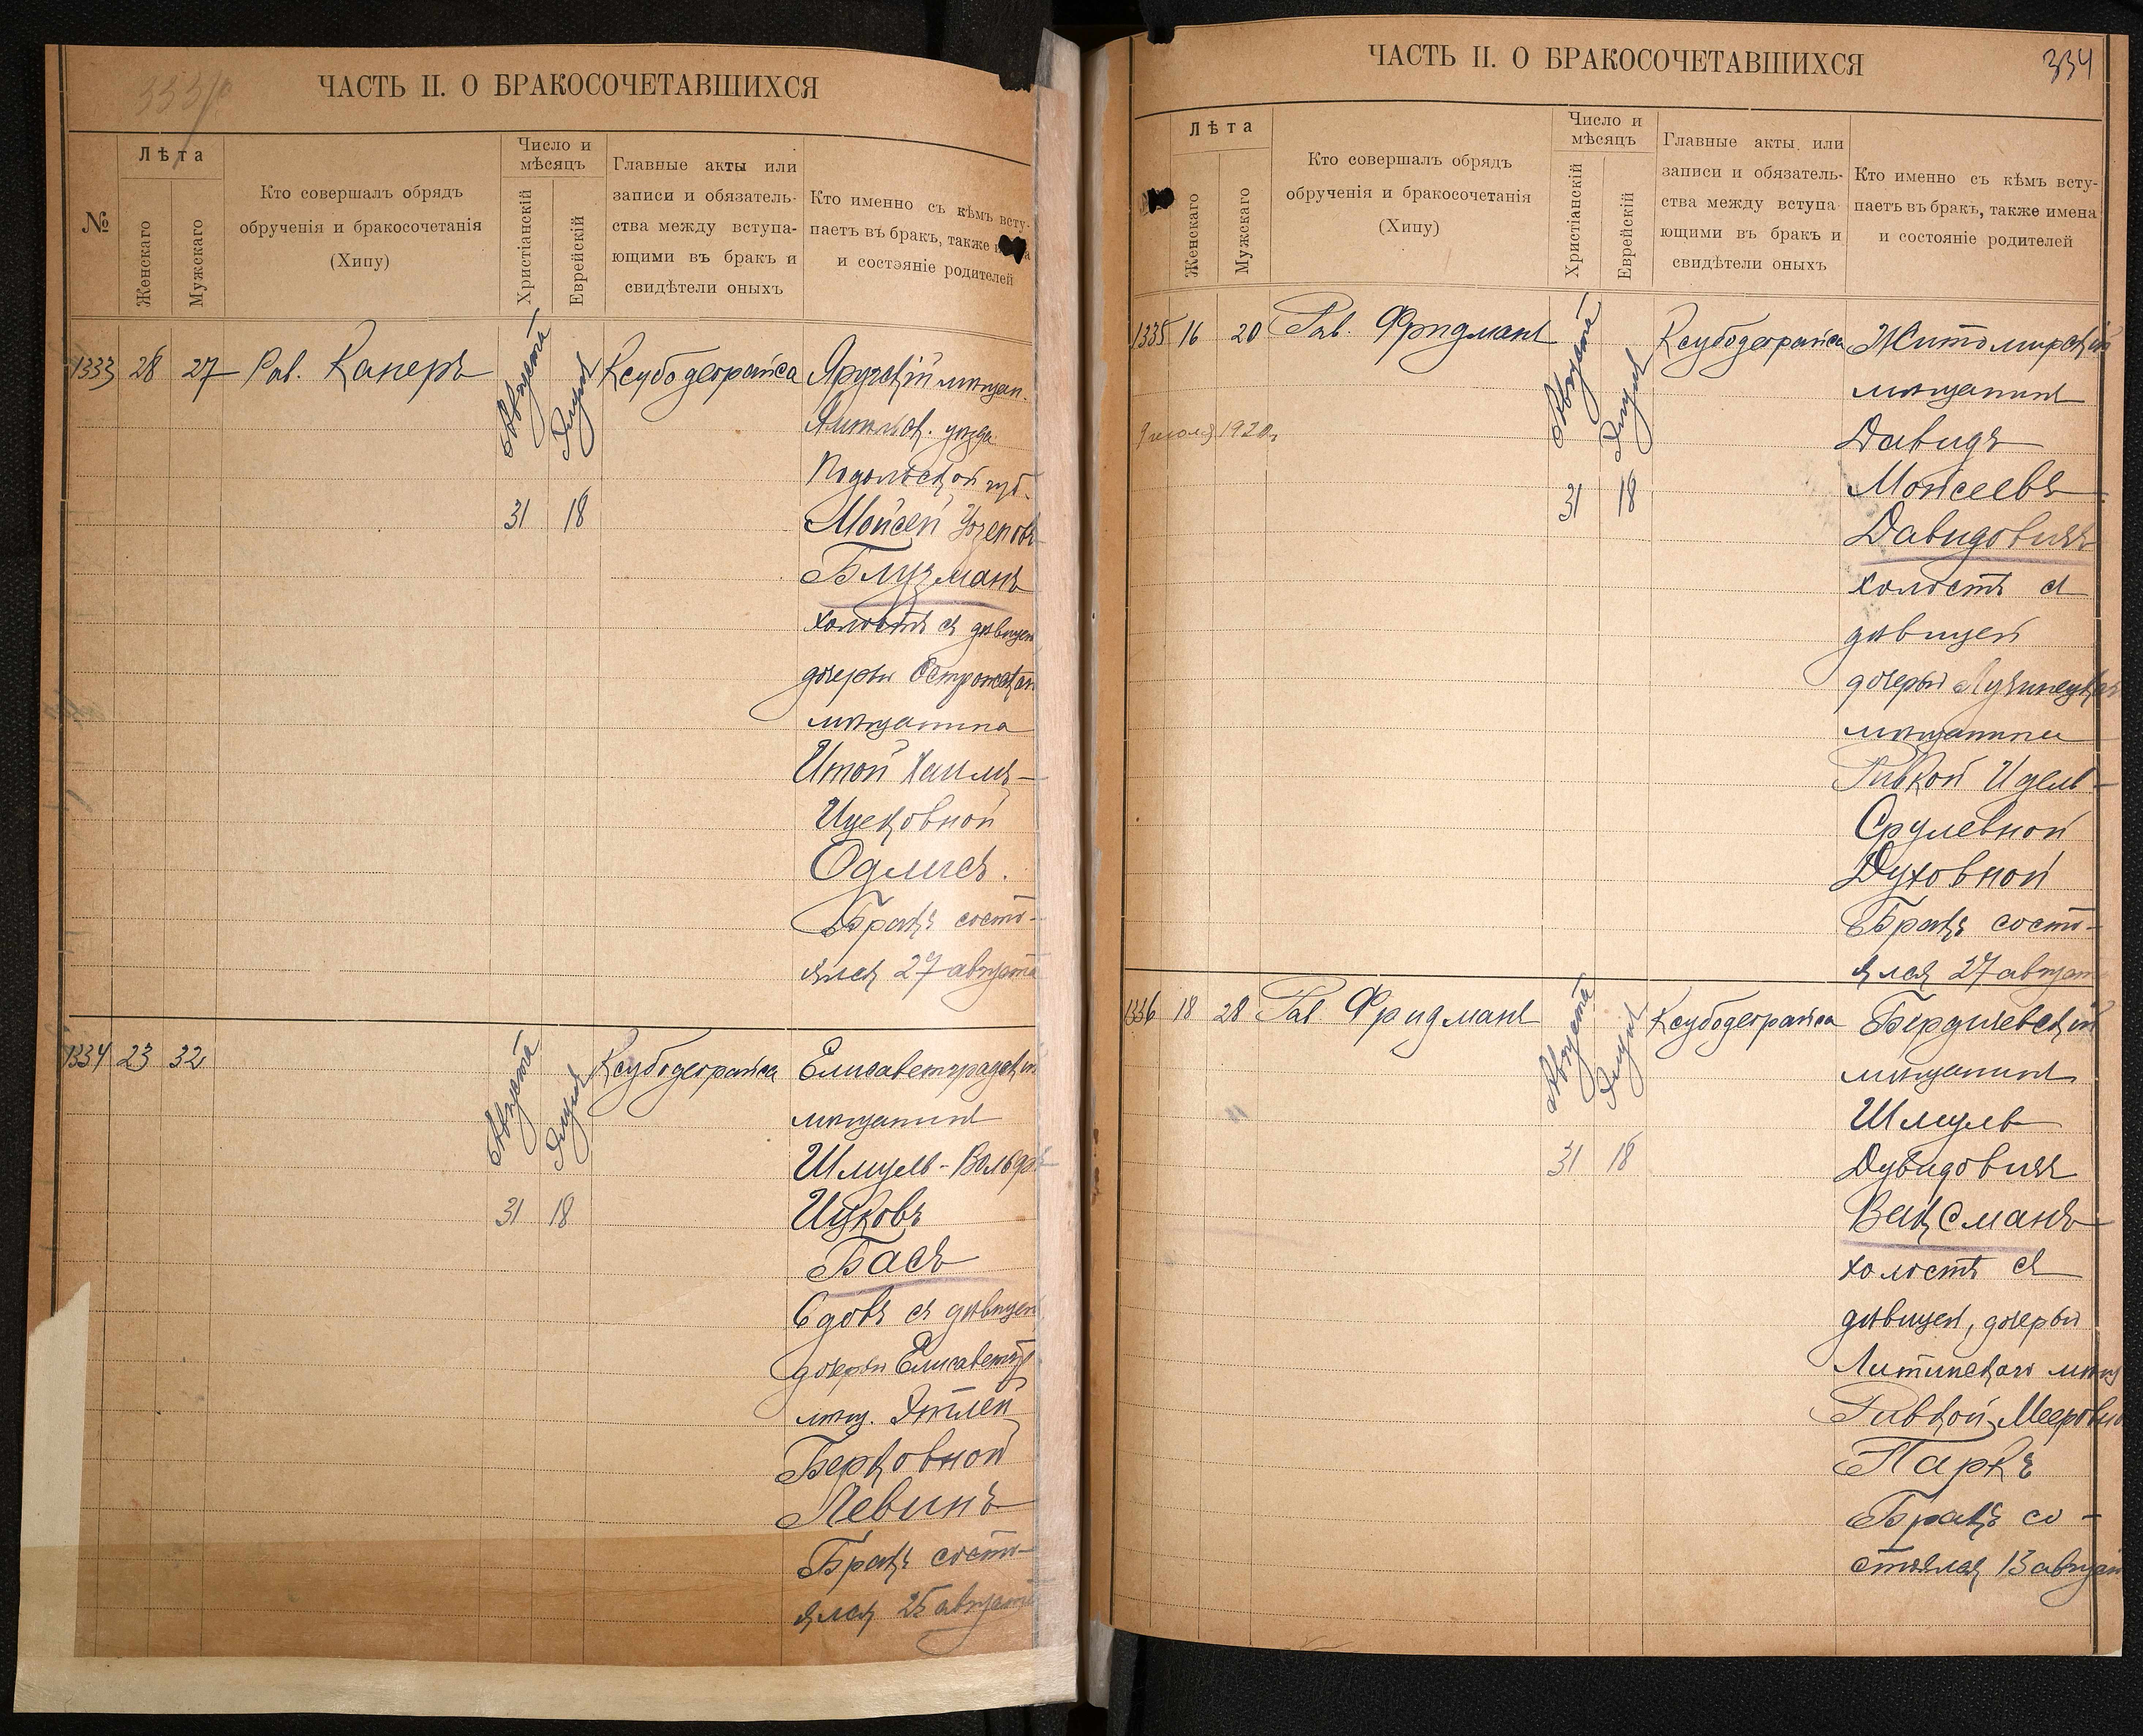 333/о
ЧАСТЬ II. О БРАКОСОЧЕТАВШИХСЯ
№
Лѣта
Женскаго
Мужскаго
Кто совершалъ обрядъ
обрученія и бракосочетанія
(Хипу)
Число и
мѣсяцъ
Христіанскій
Еврейскій
Главные акты или
записи и обязатель-
ства между вступа-
ющими въ бракъ и
свидѣтели оныхъ
Кто именно съ кѣмъ всту-
паетъ въ бракъ, также
и состояніе родителей
1333 28 27 Рав. Канеръ
Августа
Элуля
31 18
Ксубодеорайса
Яругскій мѣщан.
уѣзда
Подольской губ.
Мойсей
Блузманъ
холостъ съ дѣвицей
дочерью
мѣщанина
Итой Хаимъ-
Ицековной
Одлисъ.
Бракъ состо-
ялся 27 августа
1334 23 32
Августа
Элуля
31 18
Ксубодеорайса
Елисаветградскій
мѣщанинъ
Шмуль-Вольфъ
Ицковъ
Басъ
вдовъ съ дѣвицей
дочерью Елисаветгр
мѣщ. Этлей
Берковной
Левинъ
Бракъ состо-
ялся 25 августа
ЧАСТЬ II. О БРАКОСОЧЕТАВШИХСЯ
334
Лѣта
Женскаго
Мужскаго
Кто совершалъ обрядъ
обрученія и бракосочетанія
(Хипу)
Число и
мѣсяцъ
Христіанскій
Еврейскій
Главные акты или
записи и обязатель-
ства между вступа-
ющими въ бракъ и
свидѣтели оныхъ
Кто именно съ кѣмъ всту-
паетъ въ бракъ, также имена
и состояніе родителей
1335 16 20 Рав. Фридманъ
Августа
Элуля
31 18
1920
Ксубодеорайса
Житомирскій
мѣщанинъ
Давидъ
Мойсеевъ
Давидовичъ
холостъ съ
дѣвицей
дочерью Лучинецкаго
мѣщанина
Ривкой Идель-
Срулевной
Духовной
Бракъ состо-
ялся 27 август
1336 18 28 Рав Фридманъ
Августа
Элуля
31 18
Ксубодеорайса
Бердичевскій
мѣщанинъ
Шмуль
Дувидовичъ
Ваксманъ
холостъ съ
дѣвицей, дочерью
Литинскаго мѣщ
Ривкой Мееровно
Паркъ
Бракъ со-
стоялся 13 август